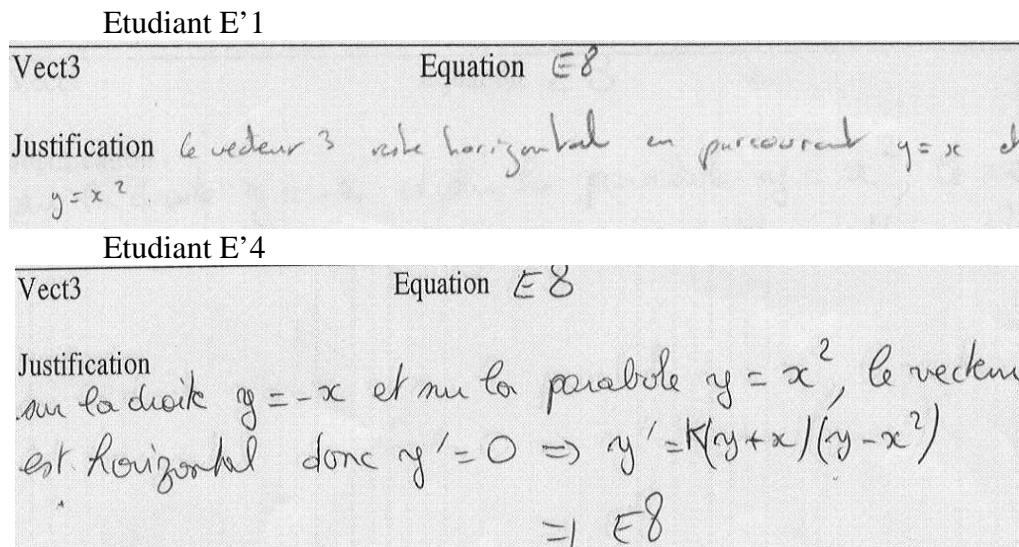 Etudiant E'1
Vect3 Equation E8
Justification le vecteur 3 reste horizontal en parcourant y = x et
y = x²
Etudiant E'4
Vect3 Equation E8
Justification
sur la droite y = -x et sur la parabole y = x², le vecteur
est horizontal donc y' = 0 => y' = K(y+x)(y-x²)
=> E8